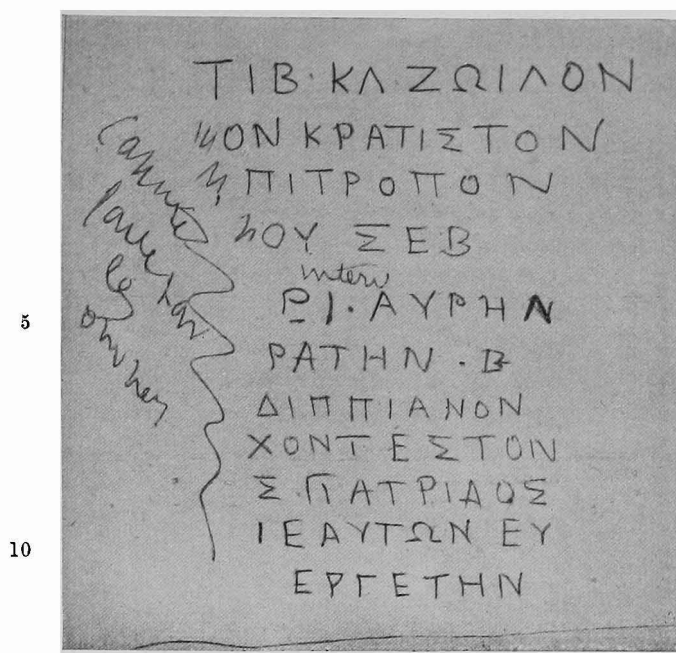 ΤΙΒ·ΚΛ·ΖΩΙΛΟΝ
ΟΝ ΚΡΑΤΙΣΤΟΝ
ΠΙΤΡΟΠΟΝ
ΟΥ ΣΕΒ
5 ΡΙ·ΑΥΡΗΝ
ΡΑΤΗΝ·Β
ΔΙΠΠΙΑΝΟΝ
ΧΟΝΤΕΣΤΟΝ
Σ ΠΑΤΡΙΔΟΣ
10 ΙΕΑΥΤΩΝ ΕΥ
ΕΡΓΕΤΗΝ